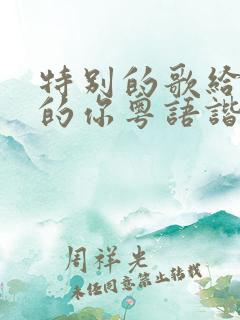 特别的歌给
的你粤語諧
周祥光
未经同意禁止转载